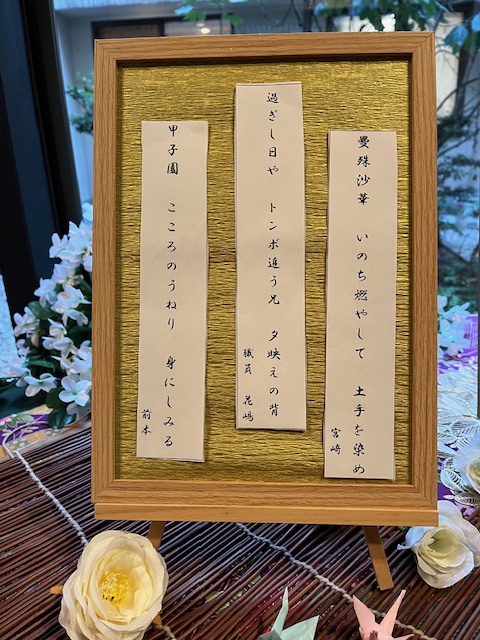 曼殊沙華　いのち燃やして　土手を染め
宮崎
過ぎし日や　トンボ追う兄　夕映えの背
職員　花嶋
甲子園　こころのうねり　身にしみる
前本